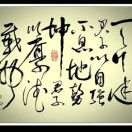 天行健
君子以自強
不息地勢
坤君子
以厚德
載物